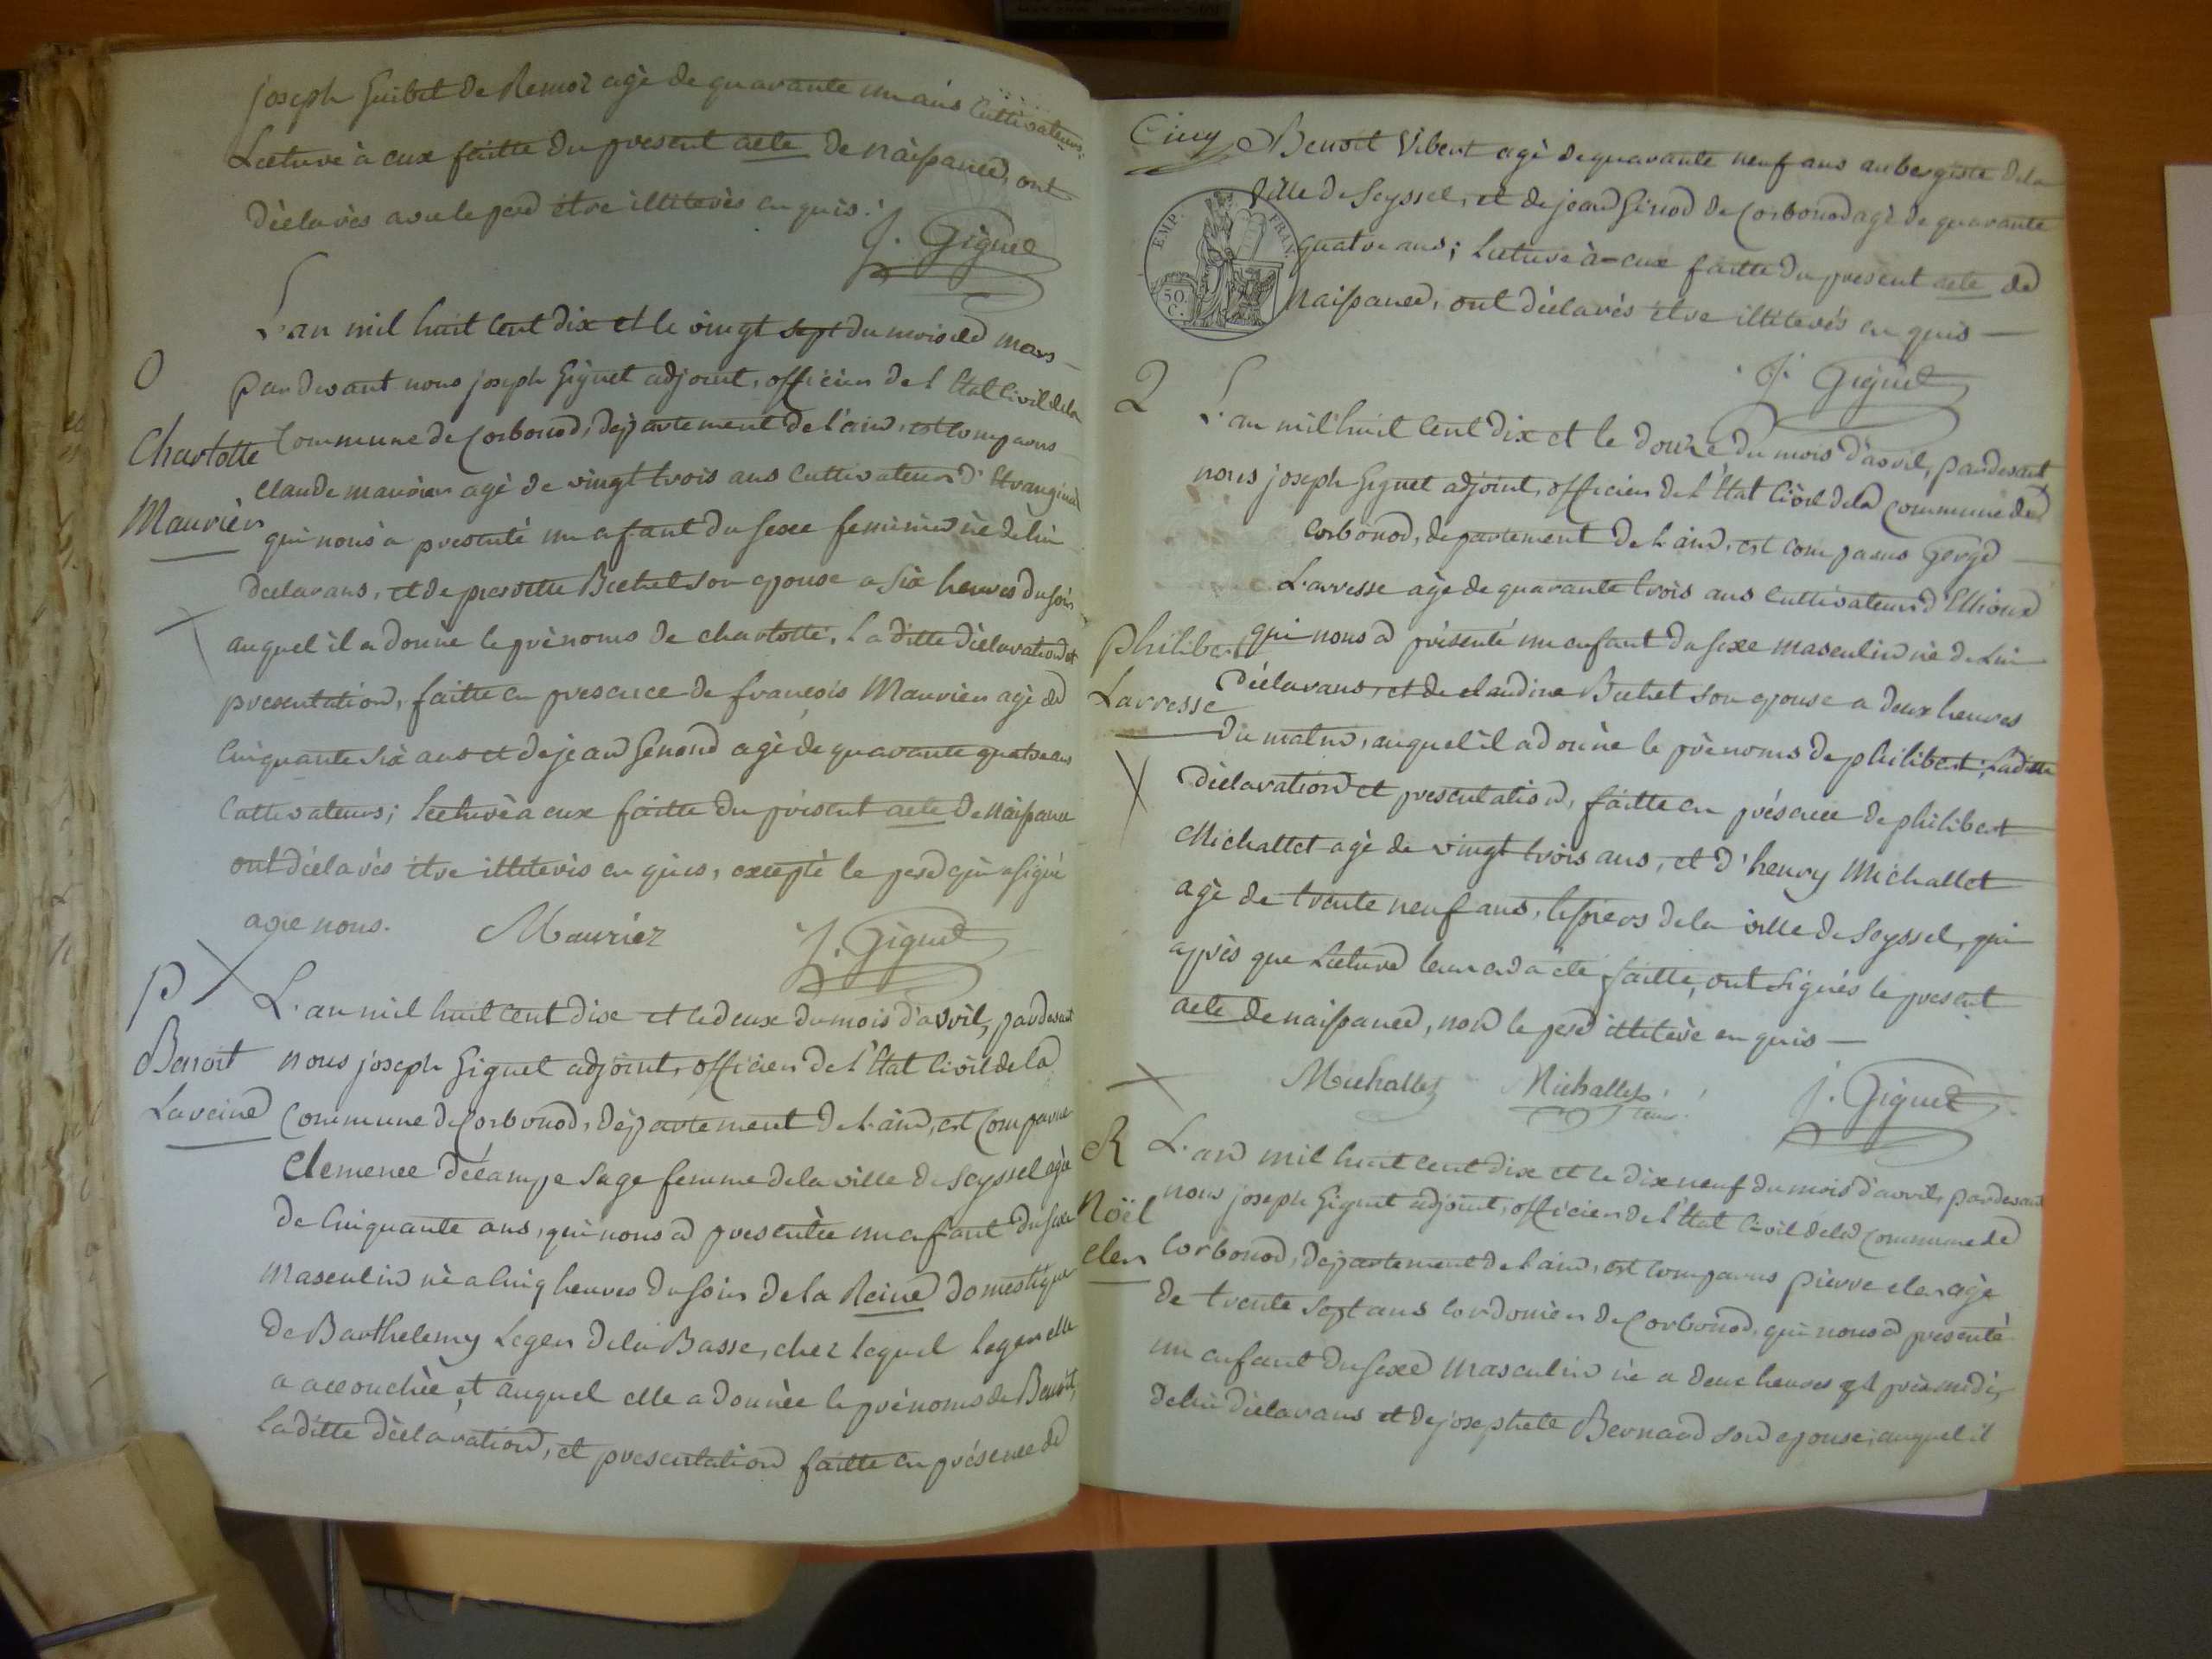 joseph Guibet de Remoz agè de quarante un ans Cultivateurs:
Lecture à eux faitte du present acte de naissance, ont
Dèclarès avec le pere être illiterès enquis.
J. Giguet
L'an mil huit cent dix et le vingt sept du mois de mars
O
pardevant nous joseph Giguet adjoint, officier de l'Etat Civil dela
Charlotte
Commune de Corbonod, département de l'ain, est comparus
claude maurier agè de vingt trois ans Cultivateur d'Etranginaz
Maurièr
qui nous à presenté un enfant du sexe feminin nè de lui
Declarans, et de pierrette Bechet son epouse a six heures du soir
auquel il a donnè le prènoms de charlotte. La ditte Dèclaration et
presentation, faitte en presence de francois Maurier agè de
Cinquante six ans et de jean Genoud agè de quarante quatre ans
Cultivateurs; Lecture a eux faitte du present acte de Naissance
ont dèclarès être illiterès enquis, exceptè le pere qui a signé
avec nous. Maurier J. Giguet
P
L'an mil huit cent dix et le deux du mois d'avril, pardevant
Benoit
nous joseph Giguet adjoint, officier de l'Etat Civil de la
Lareine
Commune de Corbonod, dèpartement de L'ain, est Comparue
Clemence dècampe sage femme dela ville de Seyssel agèe
de Cinquante ans, qui nous a presentèe un enfant du sexe
Masculin nè a Cinq heures du soir de la Reine domestique
de Barthelemy Loger dela Basse, chez lequel Loger elle
a accouchèe, et auquel elle a donnèe le prènoms de Benoit,
La ditte dèclaration, et presentation faitte en présence de
Cinq
Benoit Vibert agè de quarante neuf ans aubergiste dela
EMP. FRAN.
50 C.
Ville de Seyssel, et de jean Genod de Corbonod agè de quarante
quatre ans; Lecture à eux faitte du present acte de
Naissance, ont dèclarès être illiterès enquis —
J. Giguet
Q
L'an mil huit cent dix et le douze du mois d'avril, pardevant
nous joseph Giguet adjoint, officier de l'Etat Civil dela Commune de
Corbonod, departement de L'ain, est comparus George
Larresse agè de quarante trois ans Cultivateur d'Etrioux
Philibert
qui nous a présenté un enfant du sexe masculin nè de Lui
Larresse
Dèclarans, et de claudine Bechet son epouse a deux heures
du matin, auquel il a donnè le prènoms de philibert; Laditte
Dèclaration et presentation, faitte en présence de philibert
Michallet agè de vingt trois ans, et d'henry Michallet
agè de trente neuf ans, epiciers dela ville de Seyssel, qui
après que Lecture leur en a étè faitte, ont signés le present
acte de naissance, non le pere illiterè enquis —
Michallet Michallet J. Giguet
R
L'an mil huit cent dix et le dix neuf du mois d'avril, pardevant
Noël
nous joseph Giguet adjoint, officier de l'Etat Civil dela Commune de
cler
Corbonod, dèpartement de l'ain, est comparus pierre cler agè
de trente sept ans Cordonier de Corbonod, qui nous a presentè
un enfant du sexe masculin nè a deux heures après midi,
de lui dèclarans et de josephete Bernard son epouse, auquel il